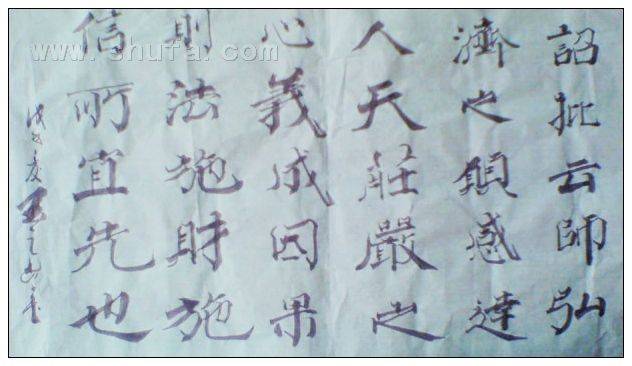 詔批云師弘
濟之願感達
人天莊嚴之
心義成因果
則法施財施
信所宜先也
戊子夏王之
www.shufa.com